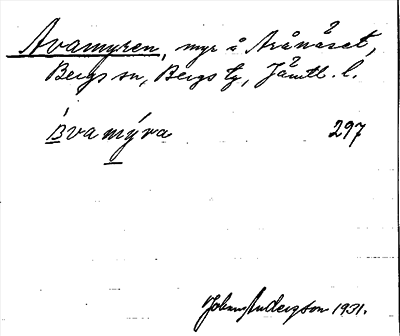 Avamyren, myr å Arånäset,
Bergs sn, Bergs tg, Jämtl. l.
Bvamýra 297
Johnny Andersson 1931.